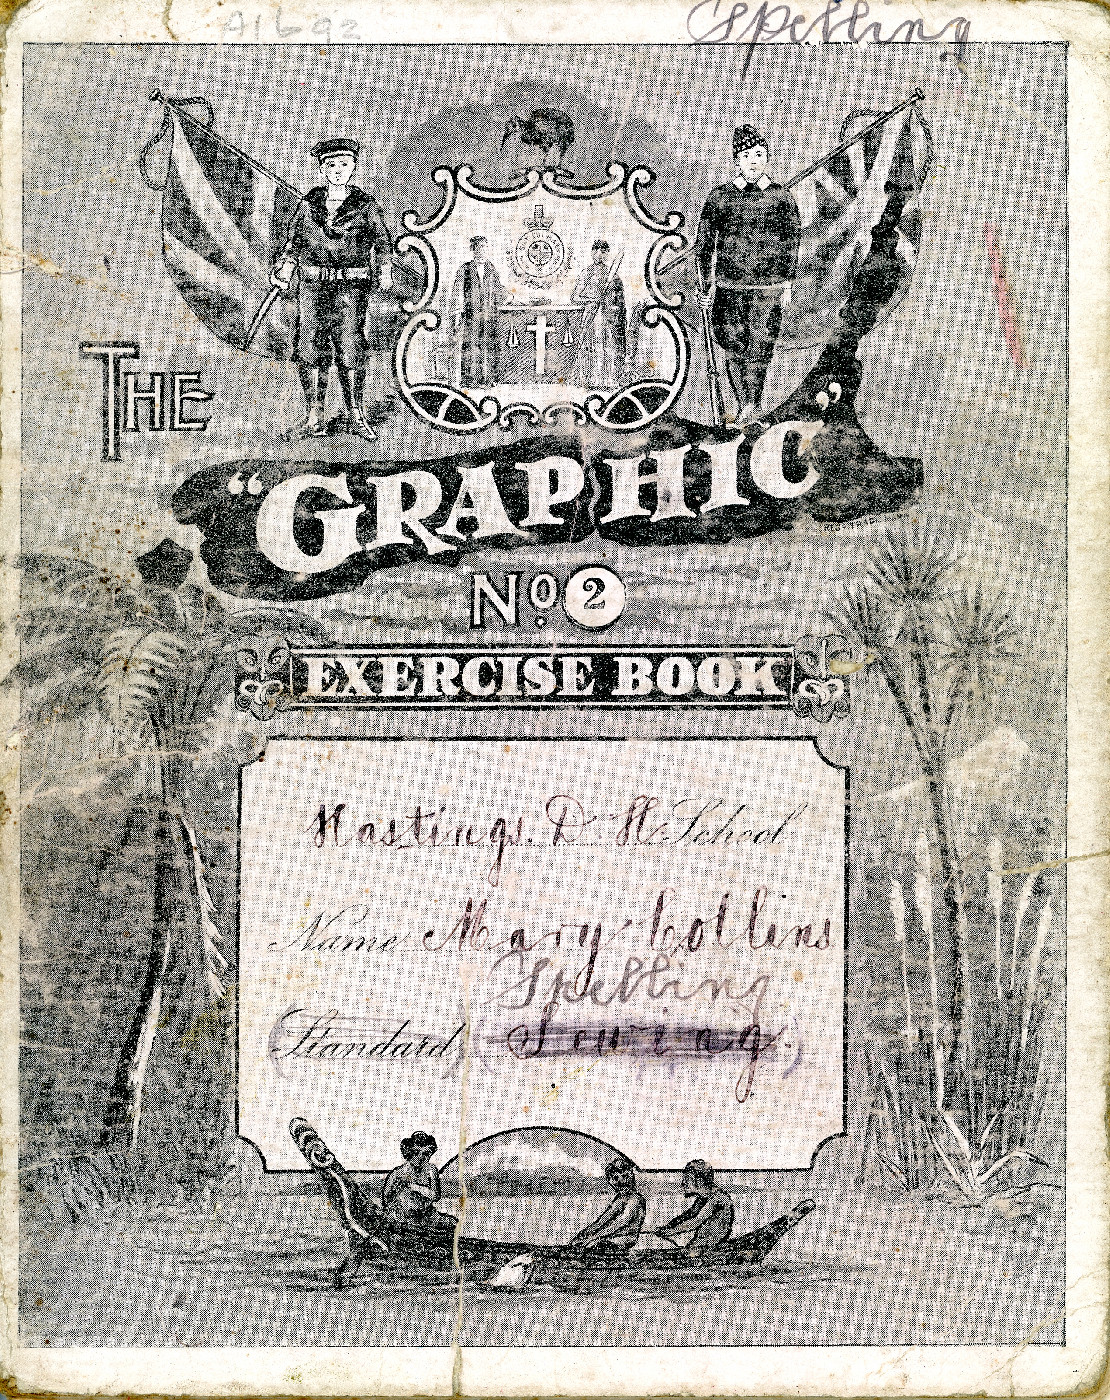 A1692
Spelling
THE
“GRAPHIC”
No. 2
EXERCISE BOOK
Hastings. D. H School
Name Mary Collins
Spelling
Standard (Sewing.)